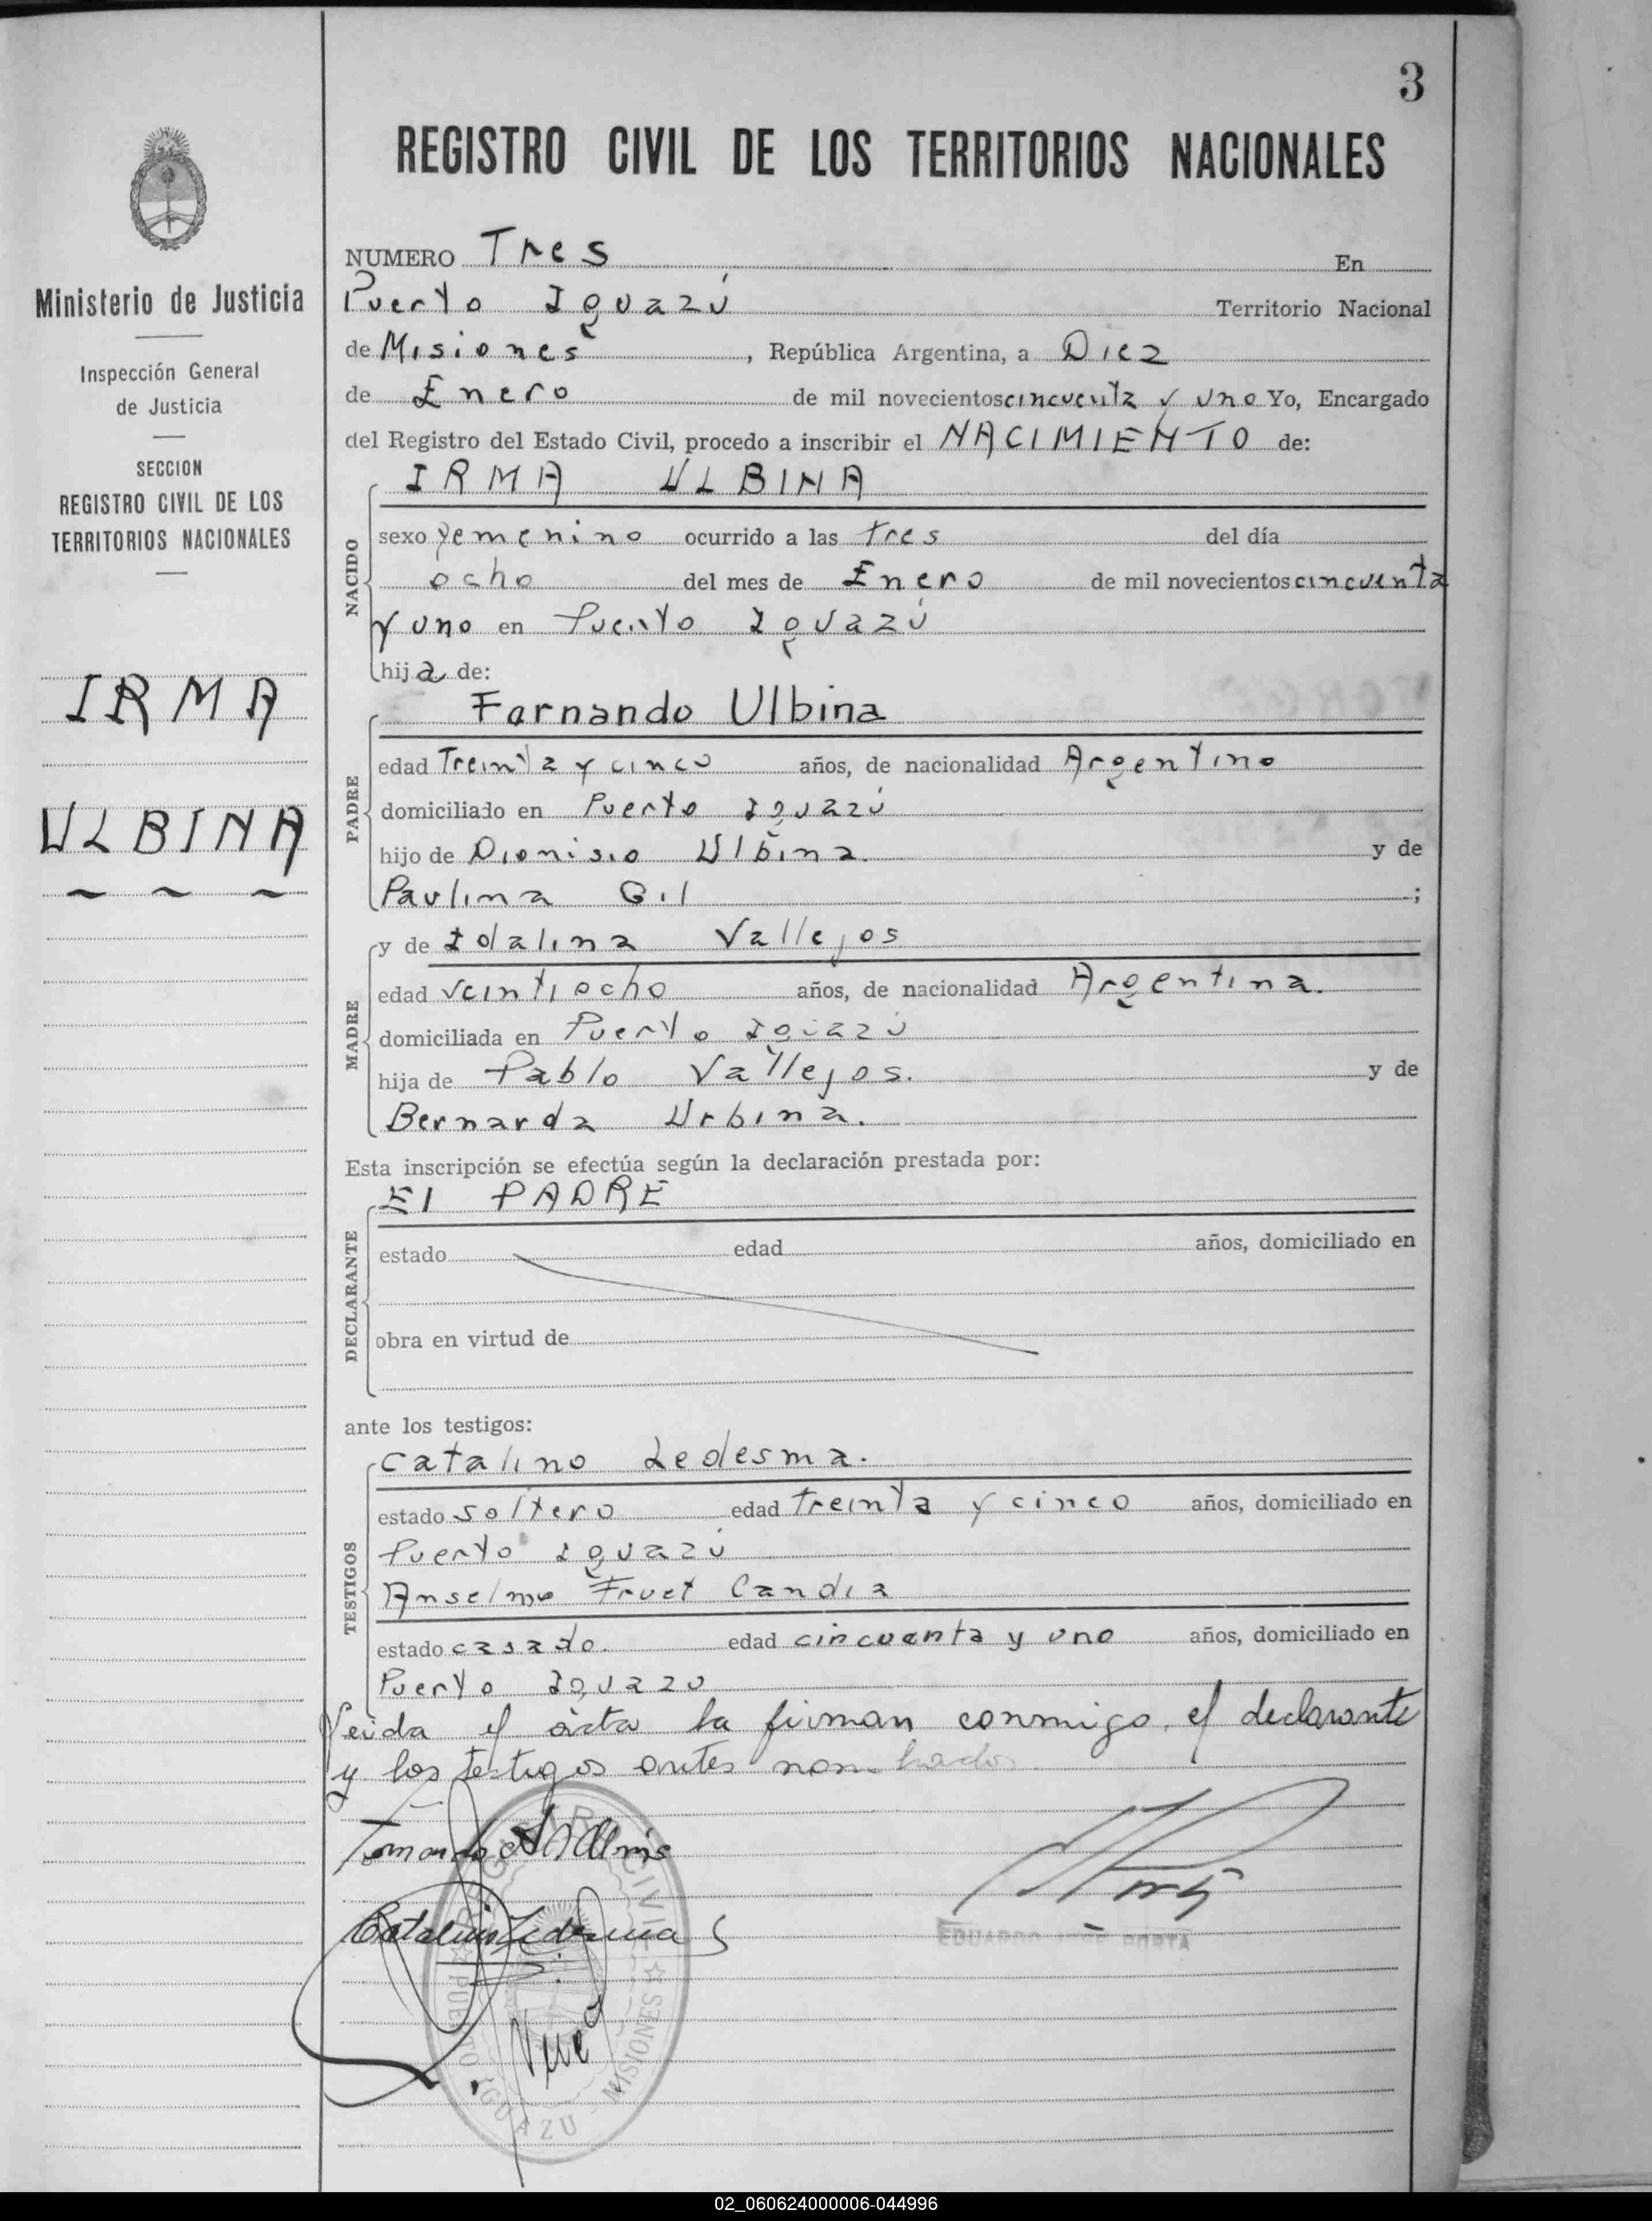 3
REGISTRO CIVIL DE LOS TERRITORIOS NACIONALES
Ministerio de Justicia
Inspección General
de Justicia
SECCION
REGISTRO CIVIL DE LOS
TERRITORIOS NACIONALES
IRMA
ULBINA
NUMERO Tres En
Puerto Iguazú Territorio Nacional
de Misiones, República Argentina, a Diez
de Enero de mil novecientos cincuenta y uno Yo, Encargado
del Registro del Estado Civil, procedo a inscribir el NACIMIENTO de:
NACIDO
IRMA ULBINA
sexo femenino ocurrido a las tres del día
ocho del mes de Enero de mil novecientos cincuenta
y uno en Puerto Iguazú
hija de:
PADRE
Fernando Ulbina
edad Treinta y cinco años, de nacionalidad Argentino
domiciliado en Puerto Iguazú
hijo de Dionisio Ulbina. y de
Paulina Gil ;
MADRE
y de Idalina Vallejos
edad veintiocho años, de nacionalidad Argentina.
domiciliada en Puerto Iguazú
hija de Pablo Vallejos. y de
Bernarda Urbina.
Esta inscripción se efectúa según la declaración prestada por:
DECLARANTE
El PADRE
estado edad años, domiciliado en
obra en virtud de
ante los testigos:
TESTIGOS
Catalino Ledesma.
estado soltero edad treinta y cinco años, domiciliado en
Puerto Iguazú
Anselmo Fruet Candia
estado casado. edad cincuenta y uno años, domiciliado en
Puerto Iguazu
Leida el acta la firman conmigo, el declarante
y los testigos antes nombrados
REGISTRO CIVIL
PUERTO IGUAZU - MISIONES
Catalino Ledesma
EDUARDO JOSÉ PORTA
02_060624000006-044996